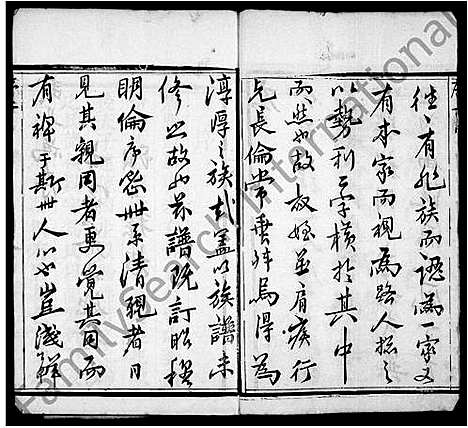 往々有非族而認為一家又
有本家而視為路人總之
以勢利二字橫於其中
而然也故叔姪並肩疾行
先長倫常乖舛烏得為
淳厚之族哉蓋以族譜未
修之故也茲譜既訂昭穆
明倫序世系清親者日
見其親同者更覺其同而
有裨于斯世人心也豈淺鮮
FamilySearch International